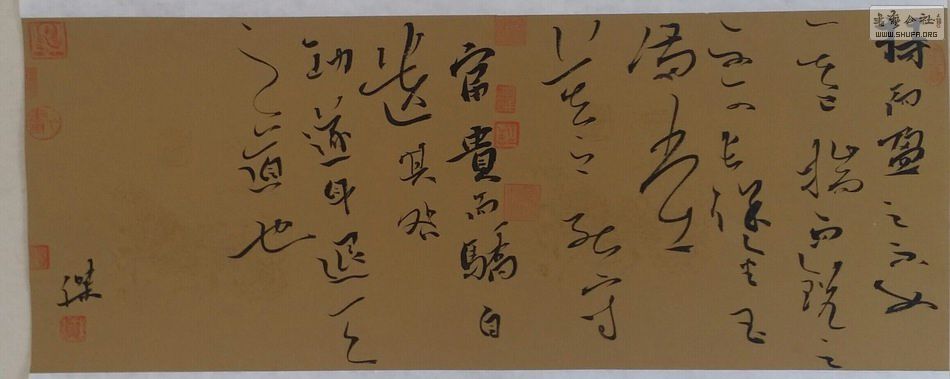 持而盈之不如
其已揣而銳之
不可長保金玉
滿堂
莫之能守
富貴而驕自
遺其咎
功遂身退天
之道也
WWW.SHUFA.ORG